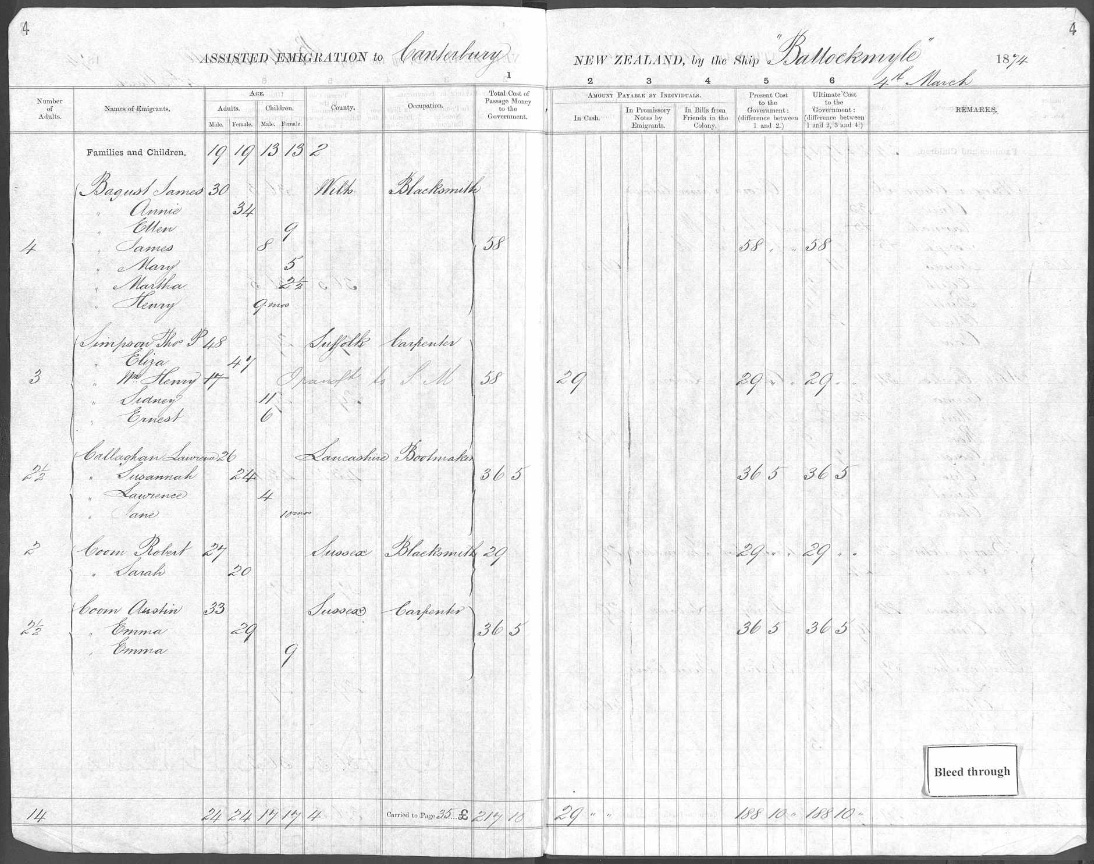 4
4
ASSISTED EMIGRATION to Canterbury
NEW ZEALAND, by the Ship "Ballochmyle" 1874
4th March
Number of Adults.
Names of Emigrants.
AGE.
Adults. Children.
Male. Female. Male. Female.
County.
Occupation.
1
Total Cost of Passage Money to the Government.
AMOUNT PAYABLE BY INDIVIDUALS.
2
In Cash.
3
In Promissory Notes by Emigrants.
4
In Bills from Friends in the Colony.
5
Present Cost to the Government: (difference between 1 and 2.)
6
Ultimate Cost to the Government: (difference between 1 and 2, 3 and 4.)
REMARKS.
Families and Children. 19 19 13 13 2
Bagust James 30 Wilts Blacksmith
" Annie 34
" Ellen 9
4 " James 8 58 58 " " 58
" Mary 5
" Martha 2½
" Henry 9 mos
Simpson Thos P 48 Suffolk Carpenter
" Eliza 47
3 " Wm Henry 17 transfd to S. M 58 29 29 " " 29 " "
" Sidney 11
" Ernest 6
Callaghan Lawrence 26 Lancashire Bootmaker
2½ " Susannah 24 36 5 36 5 36 5
" Lawrence 4
" Jane 10 mos
2 Coom Robert 27 Sussex Blacksmith 29 29 " " 29 " "
" Sarah 20
Coom Austin 33 Sussex Carpenter
2½ " Emma 29 36 5 36 5 36 5
" Emma 9
Bleed through
14 24 24 17 17 4 Carried to Page 35 £ 217 10 29 " " 188 10 " 188 10 "